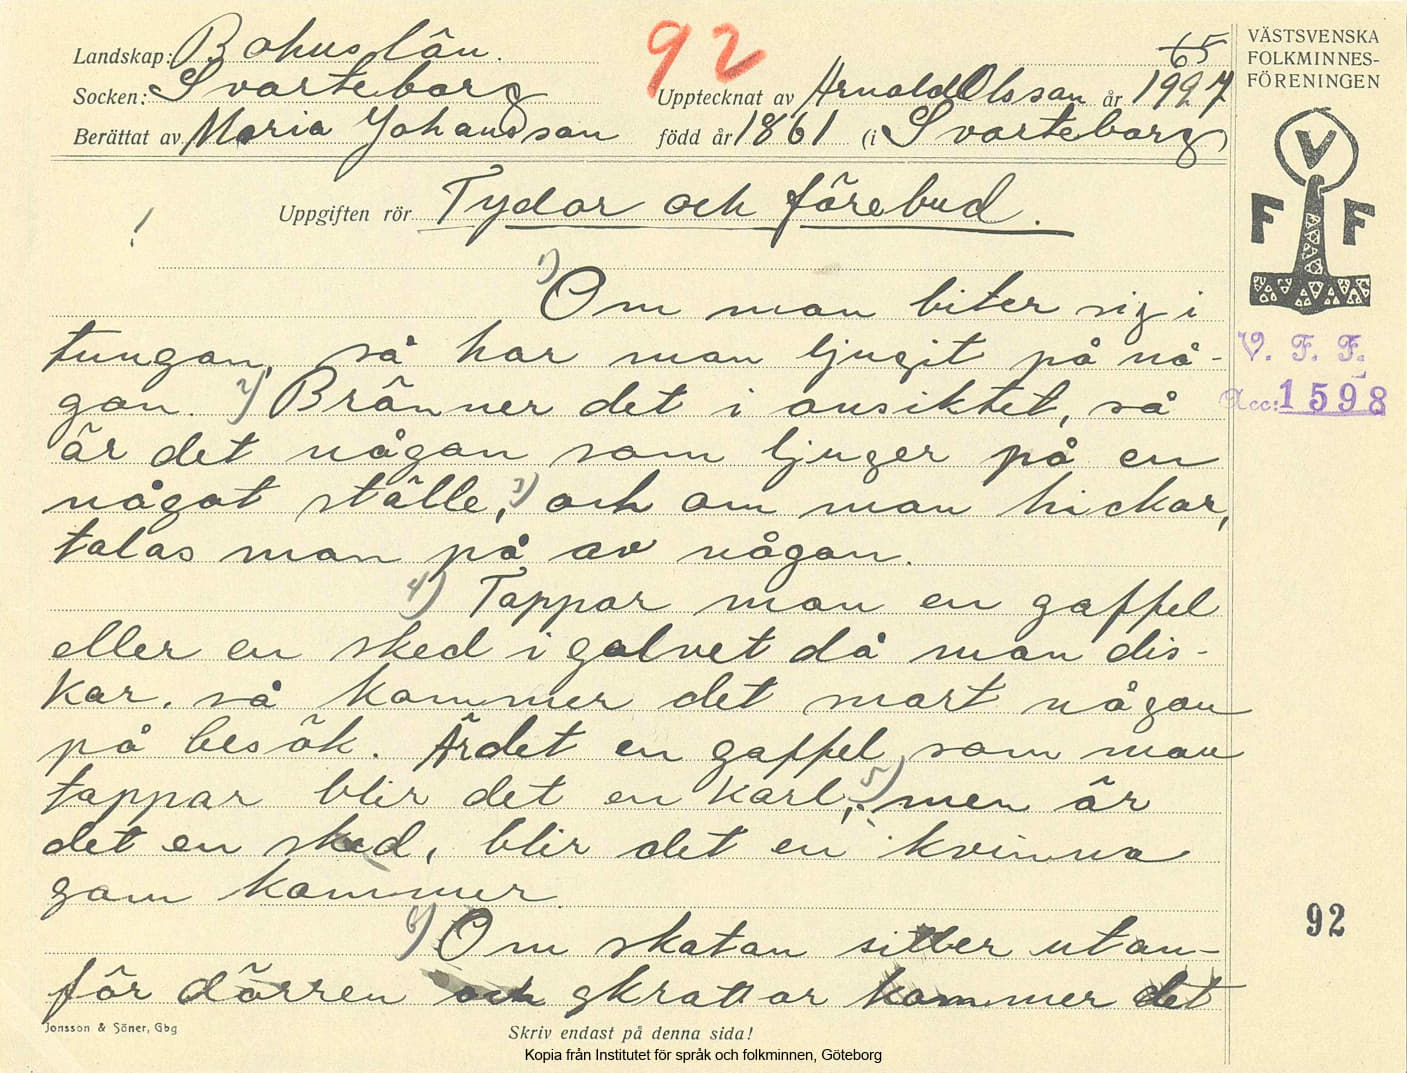 Landskap: Bohuslän.
92
65
Socken: Svarteborg
Upptecknat av Arnold Olsson år 1927
Berättat av Maria Johansson född år 1861 (i Svarteborg)
VÄSTSVENSKA
FOLKMINNES-
FÖRENINGEN
V
F F
Uppgiften rör Tydor och förebud.
1) Om man biter sig i
tungan, så har man ljugit på nå-
gon. 2) Bränner det i ansiktet, så
är det någon som ljuger på en
något ställe, 3) och om man hickar,
talas man på av någon.
4) Tappar man en gaffel
eller en sked i golvet då man dis-
kar, så kommer det snart någon
på besök. Är det en gaffel som man
tappar blir det en karl, 5) men är
det en sked, blir det en kvinna
som kommer.
6) Om skatan sitter utan-
för dörren och skrattar kommer det
V. F. F.
Acc: 1598
92
Jonsson & Söner, Gbg
Skriv endast på denna sida!
Kopia från Institutet för språk och folkminnen, Göteborg